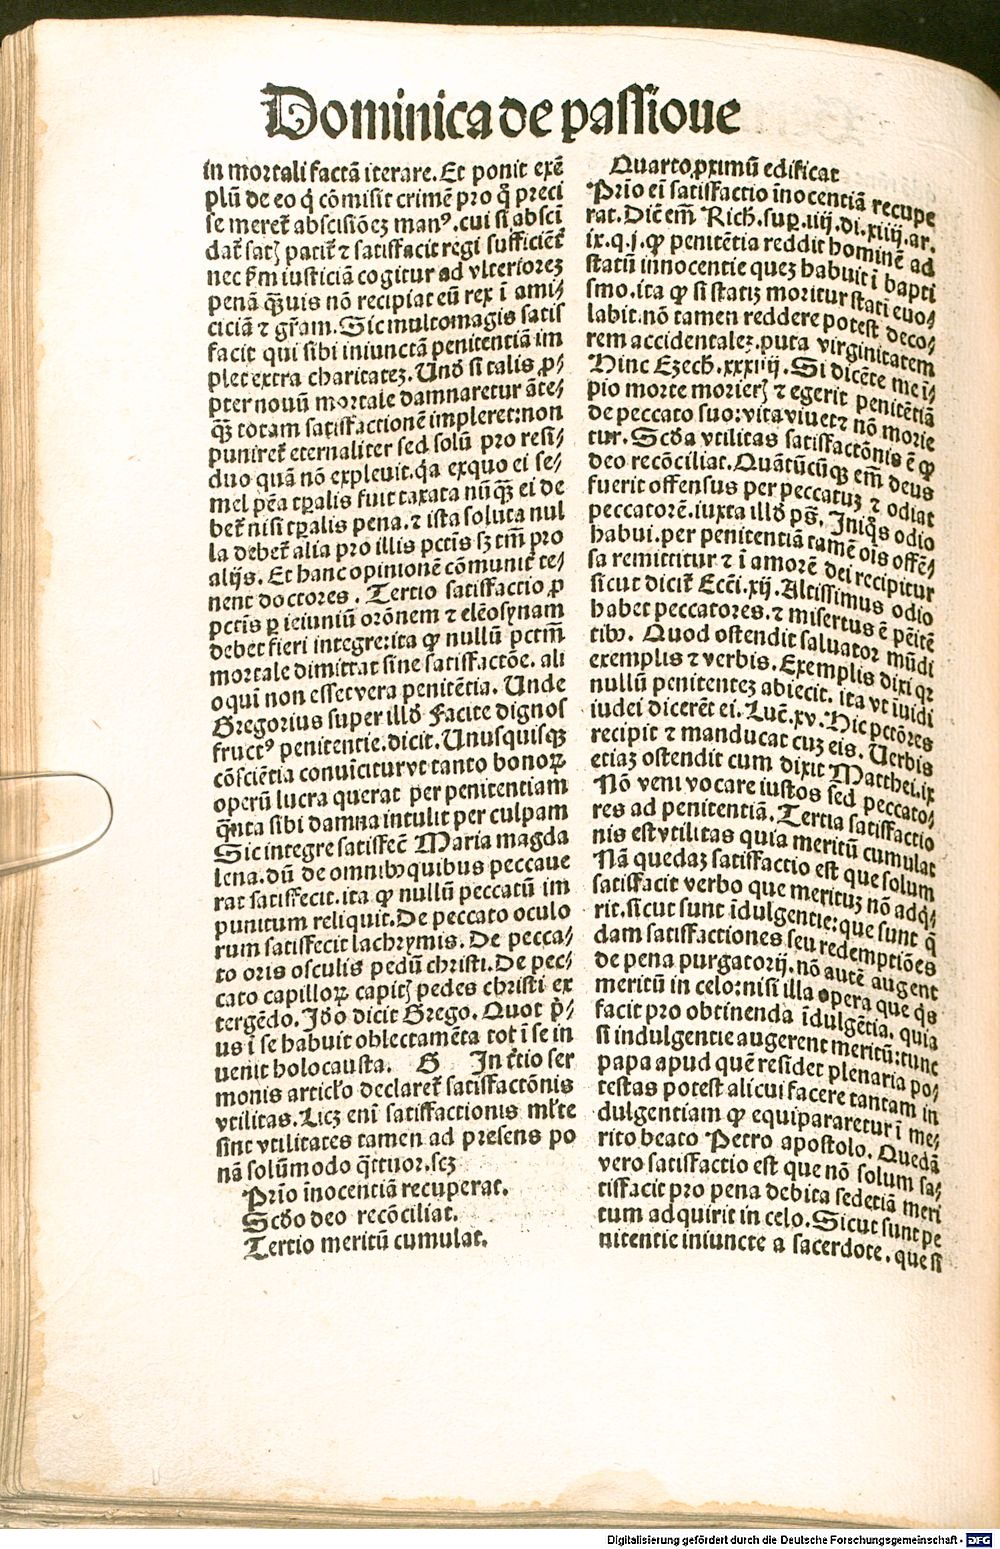 Dominica de passioue
in mortali factã iterare. Et ponit exẽ
plũ de eo q̇ cõmisit crimẽ pro q̊ preci
se meret᷑ abscisiõez manꝰ. cui si absci
dat᷑ satꝭ patit᷑ ⁊ satisfacit regi sufficiẽt᷑
nec ẜm iusticiã cogitur ad vlteriorez
penã q̃uis nõ recipiat eũ rex ĩ ami⸗
ciciã ⁊ gr̃am. Sic multomagis satis
facit qui sibi iniunctã penitentiã im
plet extra charitatez. Unď si talis ꝓ⸗
pter nouũ mortale damnaretur ãte⸗
q̃ꝫ totam satisfactionẽ impleret: non
puniret᷑ eternaliter sed solũ pro resi⸗
duo quã nõ expleuit. q̇a exquo ei se⸗
mel pẽa tꝑalis fuit taxata nũq̃ꝫ ei de
bet᷑ nisi tꝑalis pena. ⁊ ista soluta nul
la debet᷑ alia pro illis pctĩs sꝫ tm̃ pro
alijs. Et hanc opinionẽ cõmunit᷑ te⸗
nent doctores. Tertio satisfactio ꝓ
pctĩs ꝑ ieiuniũ orõnem ⁊ elẽosynam
debet fieri integre: ita ꝙ nullũ pctm̃
mortale dimittat sine satisfactõe. ali
oquĩ non esset vera penitẽtia. Unde
Gregorius super illď Facite dignos
fructꝰ penitentie. dicit. Unusquisqꝫ
cõsciẽtia conuĩcitur vt tanto bonoꝝ
operũ lucra querat per penitentiam
q̃nta sibi damna intulit per culpam
Sic integre satisfec̃ Maria magda
lena. dũ de omnibꝰ quibus peccaue
rat satisfecit. ita ꝙ nullũ peccatũ im
punitum reliquit. De peccato oculo
rum satisfecit lachrymis. De pecca⸗
to oris osculis pedũ christi. De pec⸗
cato capilloꝝ capitꝭ pedes christi ex
tergẽdo. Iďo dicit Grego. Quot pͥ⸗
us ĩ se habuit oblectamẽta tot ĩ se in
uenit holocausta. G In t̃tio ser
monis articľo declaret᷑ satisfactõnis
vtilitas. Licꝫ enĩ satisfactionis mľte
sint vtilitates tamen ad presens po
nã solũmodo q̃ttuor. scꝫ
Prĩo ĩnocentiã recuperat.
Scďo deo recõciliat.
Tertio meritũ cumulat.
Quarto ꝓximũ edificat
Prĩo eĩ satisfactio ĩnocentiã recupe
rat. Dic̃ em̃ Rich. suꝑ .iiij. di. xiiij. ar.
ix. q. j. ꝙ penitẽtia reddit hominẽ ad
statũ innocentie quez habuit ĩ bapti
smo. ita ꝙ si statiz moritur statĩ euo⸗
labit. nõ tamen reddere potest deco⸗
rem accidentalez. puta virginitatem
Hinc Ezech. xxxiij. Si dicẽte me ĩ⸗
pio morte morierꝭ ⁊ egerit penitẽtiã
de peccato suo: vita viuet ⁊ nõ morie
tur. Scďa vtilitas satisfactõnis ẽ ꝙ
deo recõciliat. Quãtũcũqꝫ em̃ deus
fuerit offensus per peccatuz ⁊ odiat
peccatorẽ. iuxta illď pṡ. Iniq̊s odio
habui. per penitentiã tamẽ oĩs offẽ⸗
sa remittitur ⁊ ĩ amorẽ dei recipitur
sicut dicit᷑ Ecc̃i. xij. Altissimus odio
habet peccatores. ⁊ misertus ẽ pẽitẽ
tibꝰ. Quod ostendit saluator mũdi
exemplis ⁊ verbis. Exemplis dixi qꝛ
nullũ penitentez abiecit. ita vt iuidi
iudei dicerẽt ei. Luc̃. xv. Hic pctõres
recipit ⁊ manducat cuz eis. Uerbis
etiaz ostendit cum dixit Matthei. ix
Nõ veni vocare iustos sed peccato⸗
res ad penitentiã. Tertia satisfactio
nis est vtilitas quia meritũ cumulat
Nã quedaz satisfactio est que solum
satisfacit verbo que merituz nõ adq̇⸗
rit. sicut sunt ĩdulgentie: que sunt q̃
dam satisfactiones seu redemptiões
de pena purgatorij. nõ autẽ augent
meritũ in celo: nisi illa opera que q̊s
facit pro obtinenda ĩdulgẽtia. quia
si indulgentie augerent meritũ: tunc
papa apud quẽ residet plenaria po⸗
testas potest alicui facere tantam in
dulgentiam ꝙ equipararetur ĩ me⸗
rito beato Petro apostolo. Quedã
vero satisfactio est que nõ solum sa⸗
tisfacit pro pena debita sed etiã meri
tum adquirit in celo. Sicut sunt pe
nitentie iniuncte a sacerdote. que si
Digitalisierung gefördert durch die Deutsche Forschungsgemeinschaft - DFG